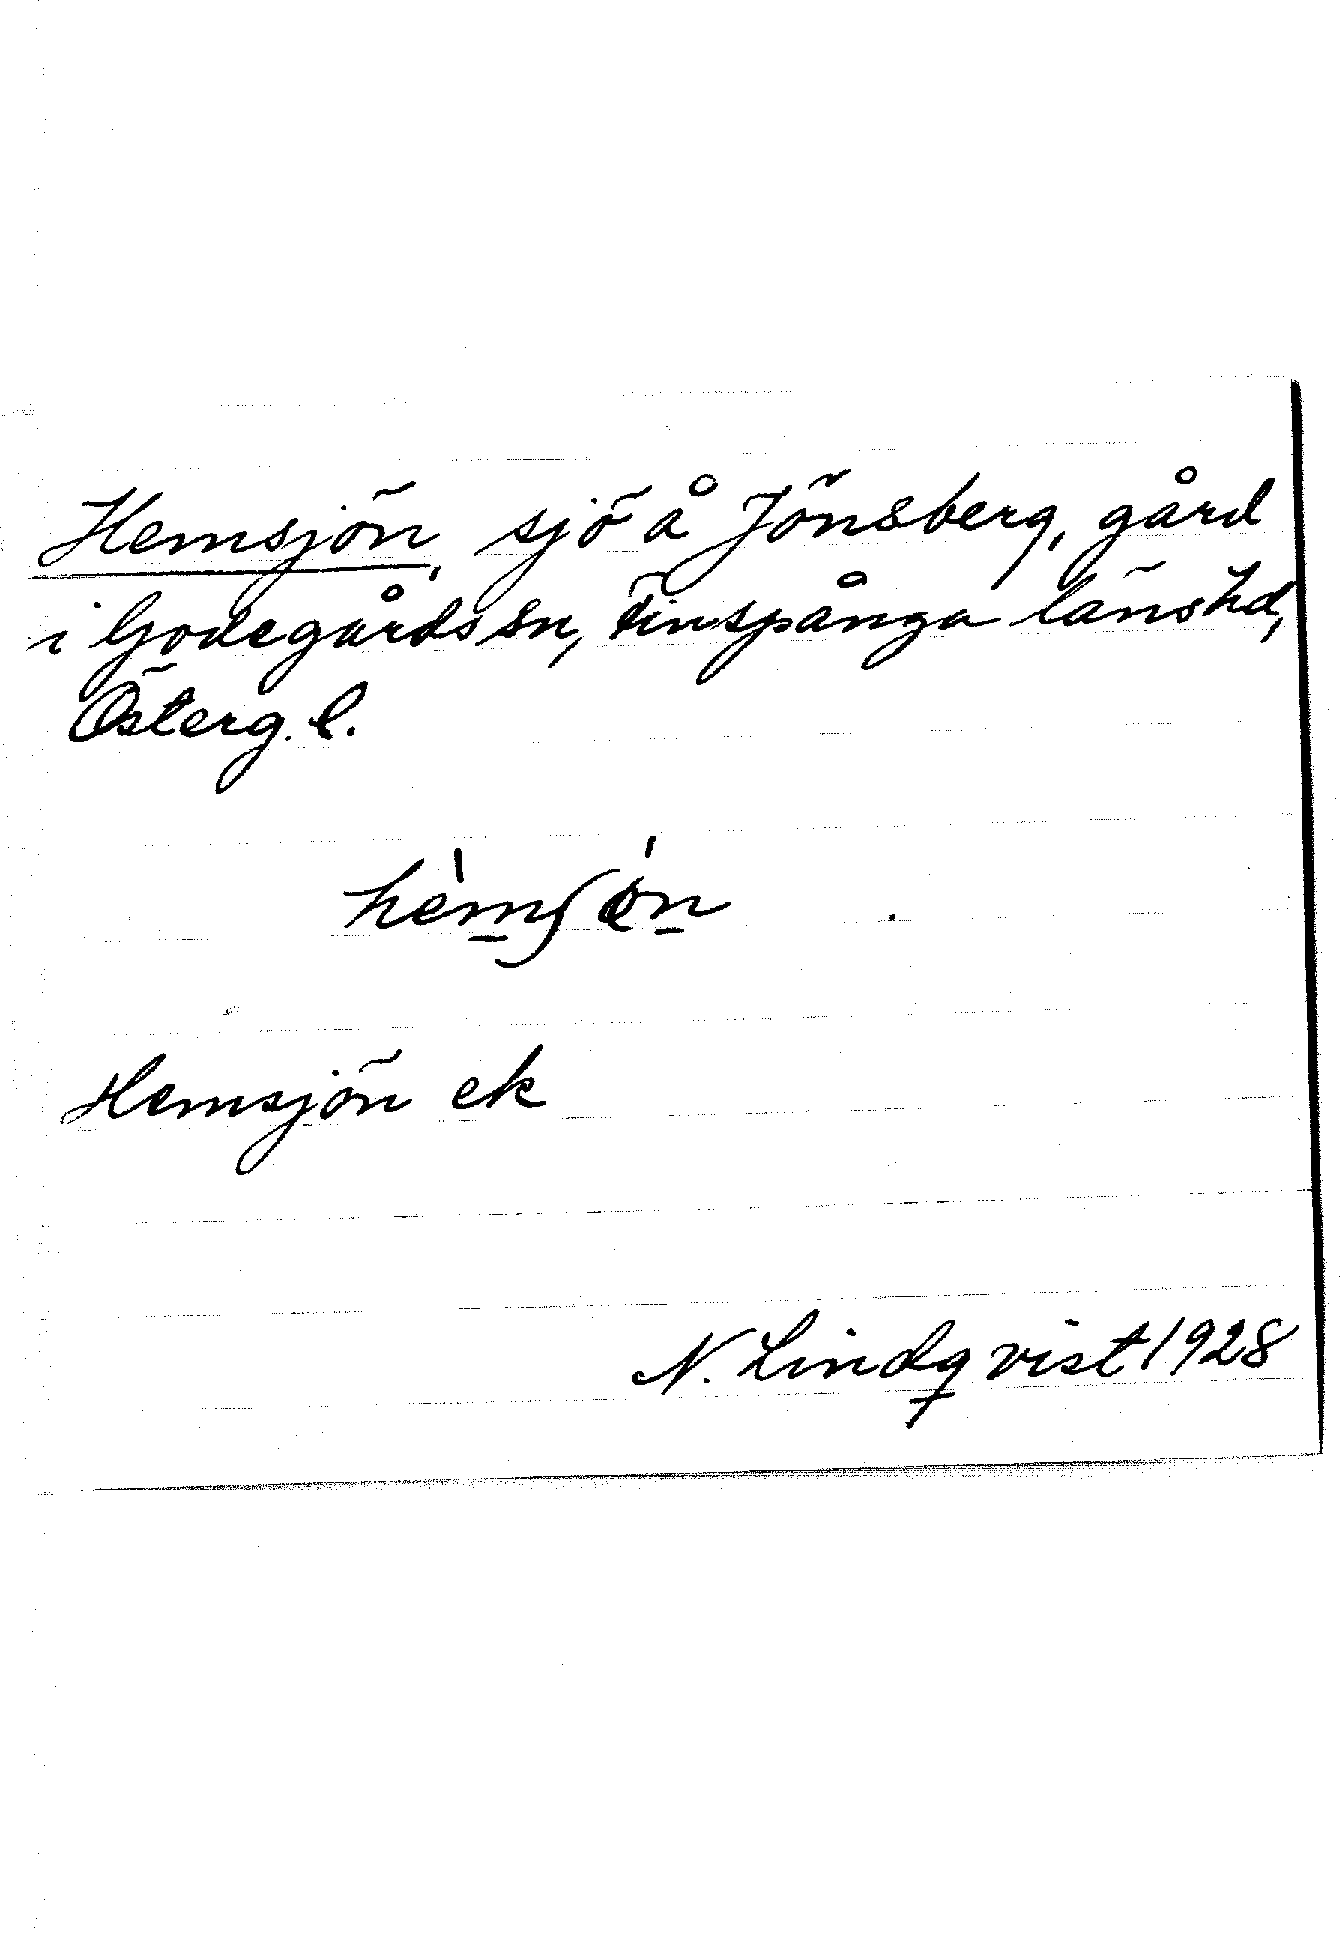 Hemsjön, sjö å Jönsberg, gård
i Godegårds sn, Finspånga läns hd,
Österg. l.
Hemsjön ek
N. Lindqvist 1928